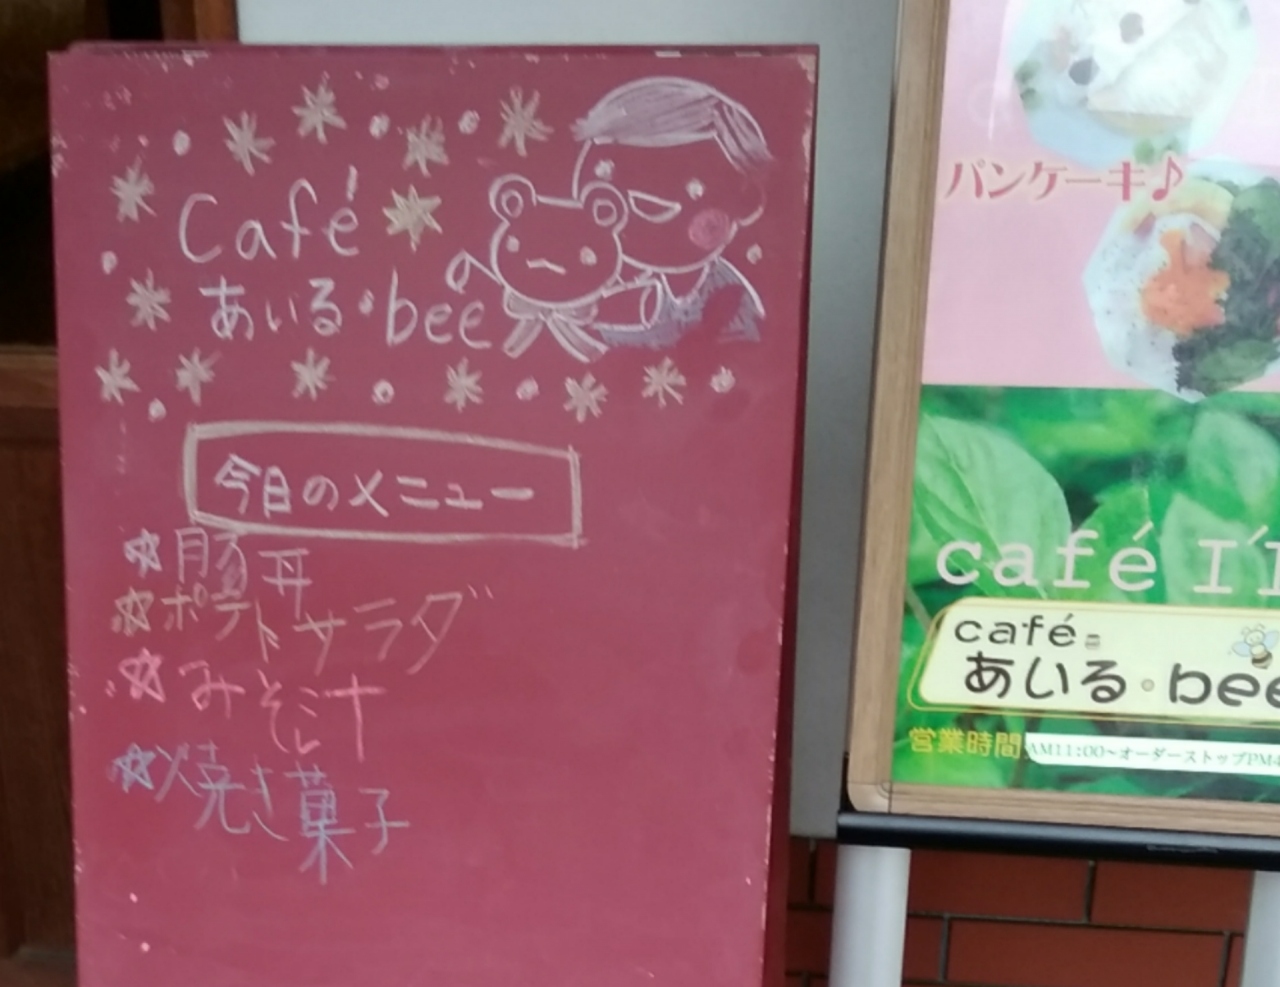 Café
あいる・bee
今日のメニュー
☆豚丼
☆ポテトサラダ
☆みそ汁
☆焼き菓子
パンケーキ♪
café I'l
café
あいる・bee
営業時間 AM11:00~オーダーストップPM4